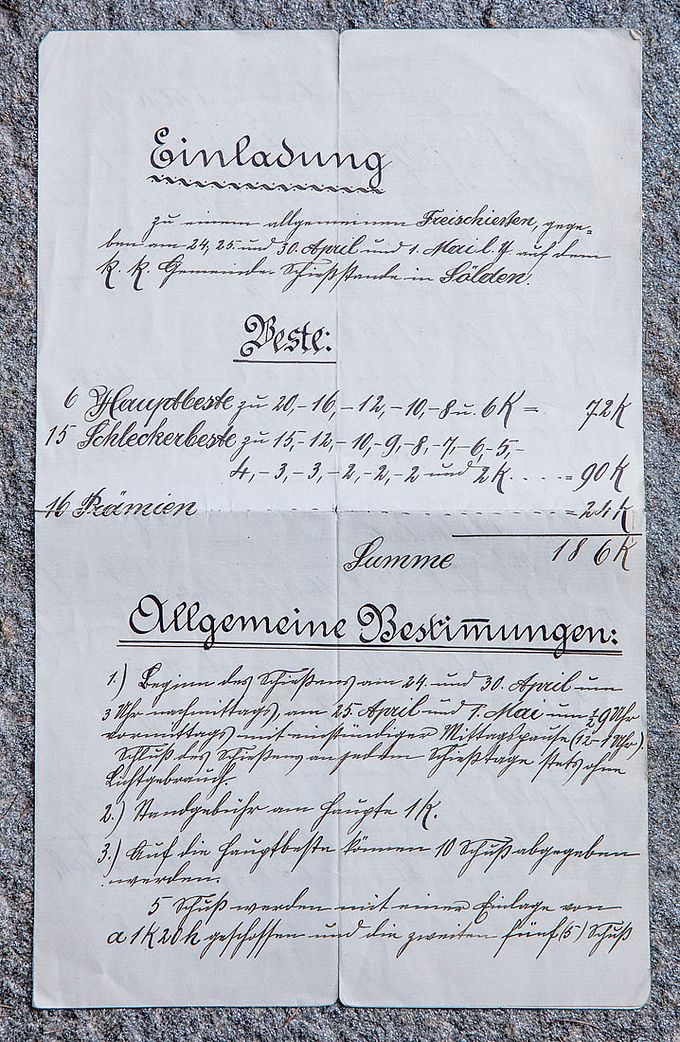 Einladung
zu einem allgemeinen Freischießen, gege-
ben am 24., 25. und 30. April und 1. Mai l. J. auf dem
K. K. Gemeinde-Schießstande in Sölden.
Beste:
6 Hauptbeste zu 20,- 16,- 12,- 10,- 8 u. 6 K = 72 K
15 Schleckerbeste zu 15,- 12,- 10,- 9,- 8,- 7,- 6,- 5,-
4,- 3,- 3,- 2,- 2,- 2 und 2 K. . . . . = 90 K
16 Prämien . . . . . . . . = 24 K
Summe 186 K
Allgemeine Bestim̅ungen:
1.) Beginn des Schießens am 24. und 30. April um
3 Uhr nachmittags, am 25. April und 1. Mai um ½ 9 Uhr
vormittags mit einstündiger Mittagspause (12-1 Uhr).
Schluß des Schießens an jedem Schießtage stets ohne
Lichtgebrauch.
2.) Standgebühr am Haupte 1 K.
3.) Auf die Hauptbeste können 10 Schuß abgegeben
werden.
5 Schuß werden mit einer Einlage von
a 1 K 20 h geschossen und die zweiten fünf (5) Schuß